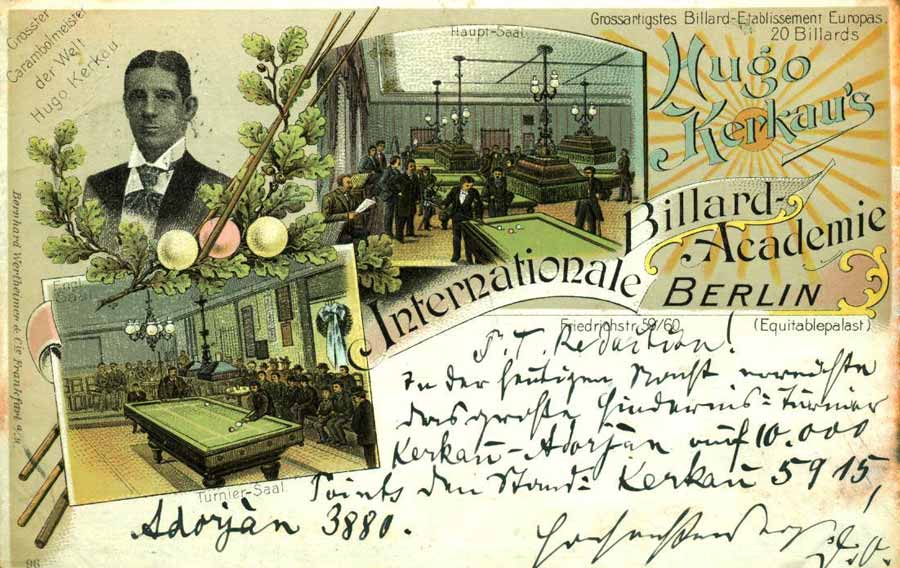 Grösster
Carambolmeister
der Welt
Hugo Kerkau
Haupt-Saal.
Grossartigstes Billard-Etablissement Europas.
20 Billards
Hugo
Kerkau's
Internationale Billard-
Academie
BERLIN
Friedrichstr. 59/60. (Equitablepalast)
Saal.
Turnier-Saal.
Bernhard Wertheimer & Cie Frankfurt a. M.
P. T. Redaction!
In der heutigen Nacht erreichte
das große Hindernis-Turnier
Kerkau-Adorján auf 10.000
Points den Stand: Kerkau 5915,
Adorján 3880.
96